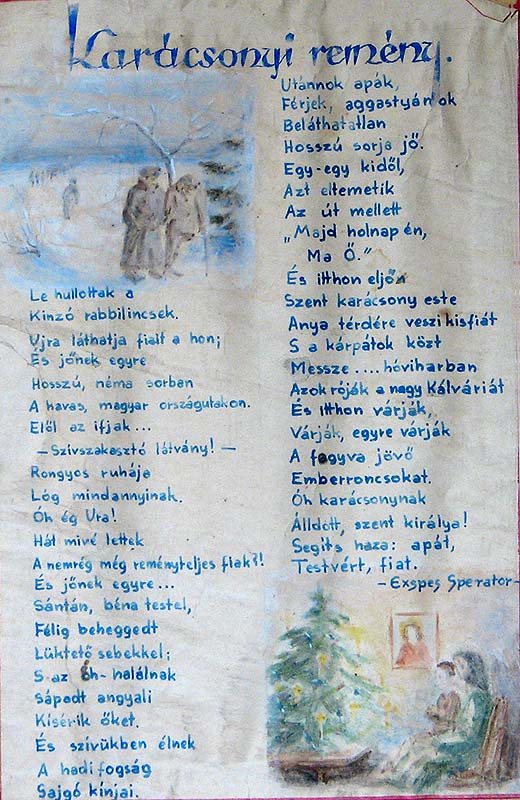 Karácsonyi remény.
Le hullottak a
Kinzó rabbilincsek.
Ujra láthatja fiait a hon;
És jőnek egyre
Hosszú, néma sorban
A havas, magyar országutakon.
Elől az ifjak...
— Szívszakasztó látvány! —
Rongyos ruhája
Lóg mindannyinak.
Óh ég Ura!
Hát mivé lettek
A nemrég még reményteljes fiak?!
És jőnek egyre...
Sántán, béna testel,
Félig beheggedt
Lüktető sebekkel;
S az éh-halálnak
Sápadt angyali
Kísérik őket.
És szívükben élnek
A hadifogság
Sajgó kínjai.
Utánnok apák,
Férjek, aggastyánok
Beláthatatlan
Hosszú sorja jő.
Egy-egy kidől,
Azt eltemetik
Az út mellett
„Majd holnap én,
Ma Ő."
És itthon eljön
Szent karácsony este
Anya térdére veszi kisfiát
S a kárpátok közt
Messze.... hóviharban
Azok róják a nagy Kálváriát
És itthon várják,
Várják, egyre várják
A fagyva jövő
Emberroncsokat.
Óh karácsonynak
Álldott, szent királya!
Segíts haza: apát,
Testvért, fiat.
- Exspes Sperator -